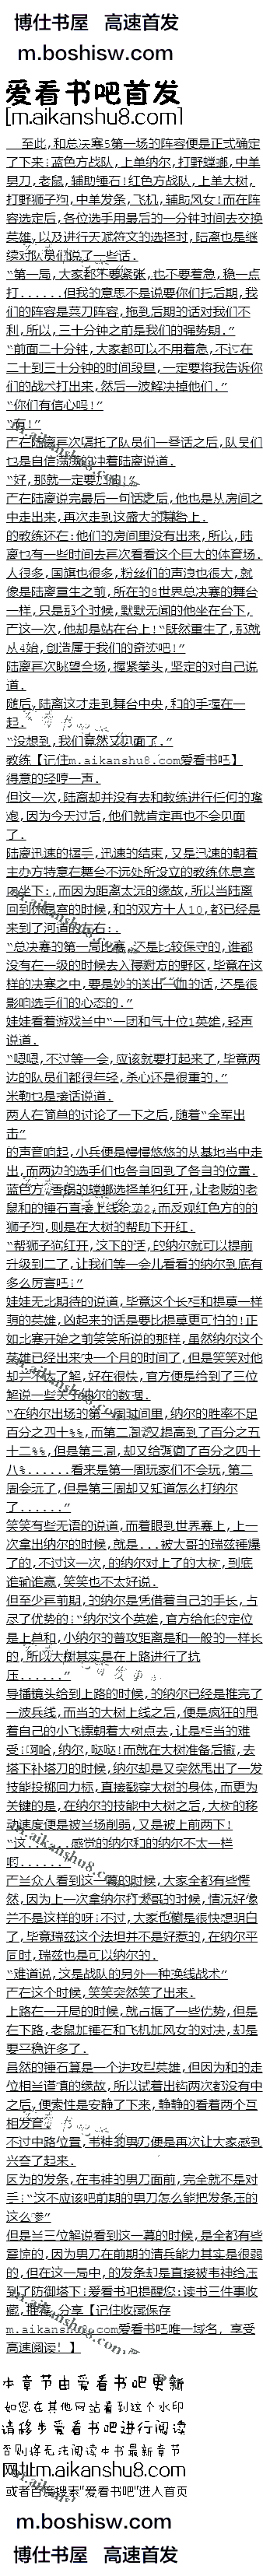 博仕书屋 高速首发
m.boshisw.com
爱看书吧首发
[m.aikanshu8.com]
至此,和总决赛5第一场的阵容便是正式确定
了下来!蓝色方战队,上单纳尔,打野螳螂,中单
男刀,老鼠,辅助锤石!红色方战队,上单大树,
打野狮子狗,中单发条,飞机,辅助风女!而在阵
容选定后,各位选手用最后的一分钟时间去交换
英雄,以及进行天赋符文的选择时,陆离也是继
续对队员们说了一些话.
“第一局,大家都不要紧张,也不要着急,稳一点
打......但我的意思不是说要你们托后期,我
们的阵容是菜刀阵容,拖到后期的话对我们不
利,所以,三十分钟之前是我们的强势期.”
“前面二十分钟,大家都可以不用着急,不过在
二十到三十分钟的时间段里,一定要将我告诉你
们的战术打出来,然后一波解决掉他们.”
“你们有信心吗!”
“有!”
在陆离再次嘱托了队员们一番话之后,队员们
也是自信满满的冲着陆离说道.
“好,那就一定要加油!”
在陆离说完最后一句话之后,他也是从房间之
中走出来,再次走到这盛大的舞台上.
的教练还在:他们的房间里没有出来,所以,陆
离也有一些时间去再次看看这个巨大的体育场.
人很多,国旗也很多,粉丝们的声浪也很大,就
像是陆离重生之前,所在的s世界总决赛的舞台
一样,只是那个时候,默默无闻的他坐在台下,
而这一次,他却是站在台上!“既然重生了,那就
从4始,创造属于我们的奇迹吧!”
陆离再次眺望会场,握紧拳头,坚定的对自己说
道.
随后,陆离这才走到舞台中央,和的手握在一
起.
“没想到,我们竟然又见面了.”
教练【记住m.aikanshu8.com爱看书吧】
得意的轻哼一声.
但这一次,陆离却并没有去和教练进行任何的嘴
炮,因为今天过后,他们就肯定再也不会见面
了.
陆离迅速的握手,迅速的结束,又是迅速的朝着
主办方特意在舞台不远处所设立的教练休息室
因坐下:,而因为距离太远的缘故,所以当陆离
回到休息室的时候,和的双方十人10,都已经是
来到了河道的左右:.
“总决赛的第一局比赛,还是比较保守的,谁都
没有在一级的时候去入侵对方的野区,毕竟在这
样的决赛之中,要是妙的送出一血的话,还是很
影响选手们的心态的.”
娃娃看着游戏当中“一团和气十位1英雄,轻声
说道.
“嗯嗯,不过等一会,应该就要打起来了,毕竟两
边的队员们都很年轻,杀心还是很重的.”
米勒也是接话说道.
两人在简单的讨论了一下之后,随着“全军出
击”
的声音响起,小兵便是慢慢悠悠的从基地当中走
出,而两边的选手们也各自回到了各自的位置.
蓝色方,香锅的螳螂选择单独红开,让老贼的老
鼠和的锤石直接上线2,而反观红色方的的
狮子狗,则是在大树的帮助下开红.
“帮狮子狗红开,这下的话,的纳尔就可以提前
升级到二了,让我们等一会儿看看的纳尔到底有
多么厉害吧:”
娃娃无比期待的说道,毕竟这个长相和提莫一样
萌的英雄,凶起来的话是要比提莫更可怕的!正
如比赛开始之前笑笑所说的那样,虽然纳尔这个
英雄已经出来快一个月的时间了,但是笑笑对他
却一点不了解,好在很快,官方便是给到了三位
解说一些关于纳尔的数据.
“在纳尔出场的第一周时间里,纳尔的胜率不足
百分之四十%%,而第二周又提高到了百分之五
十二%%,但是第三周,却又给调回了百分之四十
八%......看来是第一周玩家们不会玩,第二
周会玩了,但是第三周却又知道怎么打纳尔
了......”
笑笑有些无语的说道,而着眼到世界赛上,上一
次拿出纳尔的时候,就是...被大哥的瑞兹锤爆
了的,不过这一次,的纳尔对上了的大树,到底
谁输谁赢,笑笑也不太好说.
但至少再前期,的纳尔是凭借着自己的手长,占
尽了优势的:“纳尔这个英雄,官方给他的定位
是上单和,小纳尔的普攻距离是和一般的一样长
的,所以大树其实是在上路进行了抗
压......”
导播镜头给到上路的时候,的纳尔已经是推完了
一波兵线,而当的大树上线之后,便是疯狂的甩
着自己的小飞镖朝着大树点去,让是相当的难
受:啊哈,纳尔,哒哒!而就在大树准备后撤,去
塔下补塔刀的时候,纳尔却是又突然甩出了一发
技能投掷回力标,直接戳穿大树的身体,而更为
关键的是,在纳尔的技能中大树之后,大树的移
动速度便是被当场削弱,又是被上前两下!
“这......感觉的纳尔和的纳尔不太一样
啊......”
当众人看到这一幕的时候,大家全都有些愕
然,因为上一次拿纳尔打大哥的时候,情况好像
并不是这样的呀:不过,大家也倒是很快想明白
了,毕竟瑞兹这个法坦并不是好惹的,在纳尔平
同时,瑞兹也是可以纳尔的.
“难道说,这是战队的另外一种换线战术”
在这个时候,笑笑突然笑了出来.
上路在一开局的时候,就占据了一些优势,但是
在下路,老鼠加锤石和飞机加风女的对决,却是
要平稳许多了.
虽然的锤石算是一个进攻型英雄,但因为和的走
位相当谨慎的缘故,所以试着出钩两次都没有中
之后,便索性是安静了下来,静静的看着两个互
相发育.
不过中路位置,韦神的男刀便是再次让大家感到
兴奋了起来.
区为的发条,在韦神的男刀面前,完全就不是对
手:“这不应该吧前期的男刀怎么能把发条压的
这么惨”
但是当三位解说看到这一幕的时候,是全都有些
震惊的,因为男刀在前期的清兵能力其实是很弱
的,但在这一局中,的发条却是直接被韦神给压
到了防御塔下:爱看书吧提醒您:读书三件事收
藏,推荐,分享【记住收藏保存
m.aikanshu8.com爱看书吧唯一域名, 享受
高速阅读! 】
本章节由爱看书吧更新
如您在其他网站看到这个水印
请移步爱看书吧进行阅读
否则将无法阅读本书最新章节
网址m.aikanshu8.com
或者百度搜索"爱看书吧"进入首页
m.boshisw.com
博仕书屋 高速首发